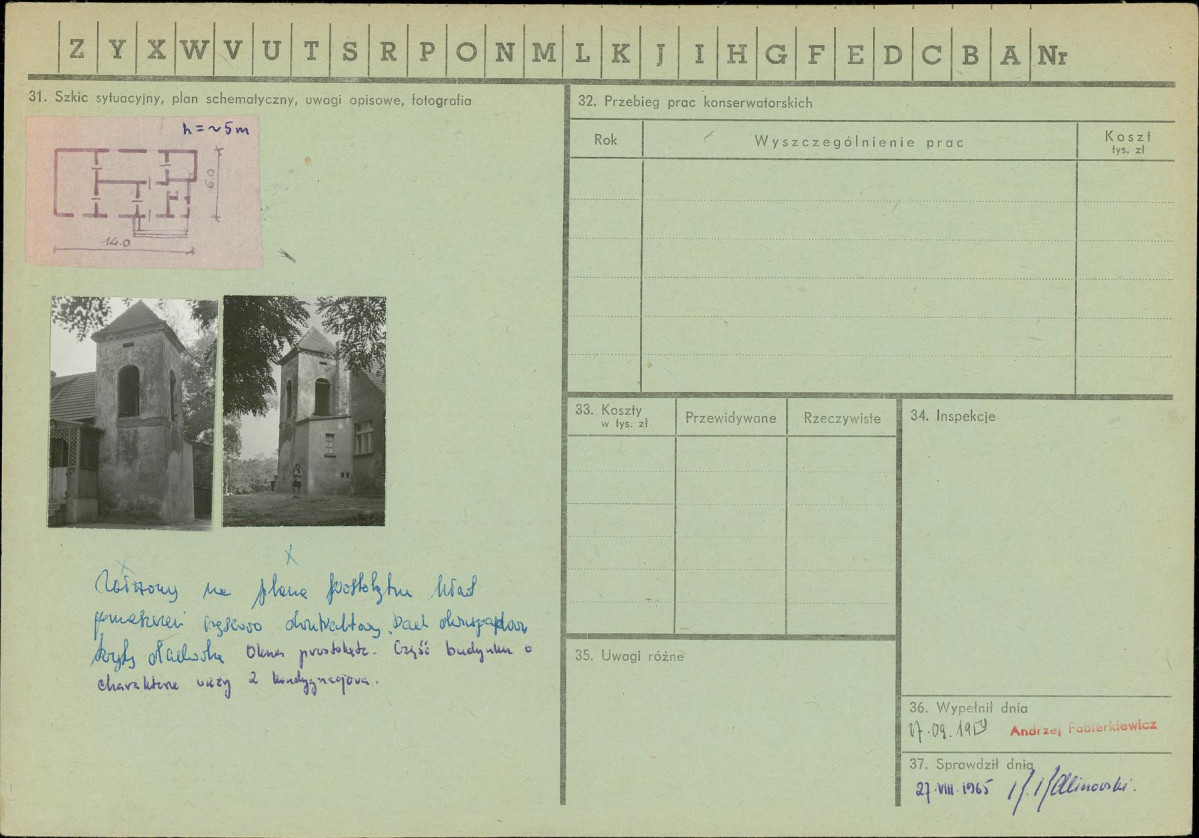 Z Y X W V U T S R P O N M L K J I H G F E D C B A Nr
31. Szkic sytuacyjny, plan schematyczny, uwagi opisowe, fotografia
h = ~5m
6.0
14.0
x
Założony na planie prostokątna Układ
pomieszczeń częściowo dwutraktowy. Dach dwuspadowy
kryty dachówką Okna prostokątne. Część budynku o
charakterze wieży 2 kondygnacjowa.
32. Przebieg prac konserwatorskich
Rok
Wyszczególnienie prac
Koszt
tys. zł
33. Koszty
w tys. zł
Przewidywane
Rzeczywiste
34. Inspekcje
35. Uwagi różne
36. Wypełnił dnia
27.09.1959 Andrzej Fabierkiewicz
37. Sprawdził dnia
27.VIII.1965 Kalinowski.